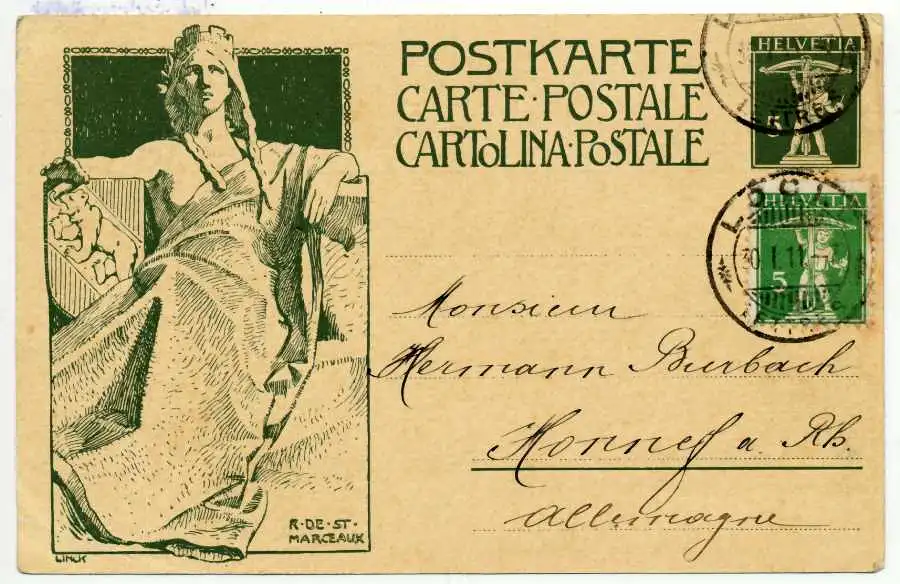 POSTKARTE
CARTE·POSTALE
CARTOLINA·POSTALE
HELVETIA
5
LOCL
HELVETIA
5
I.11
Monsieur
Hermann Burbach
Honnef a. Rh.
Allemagne
R·DE·ST·
MARCEAUX
LINCK